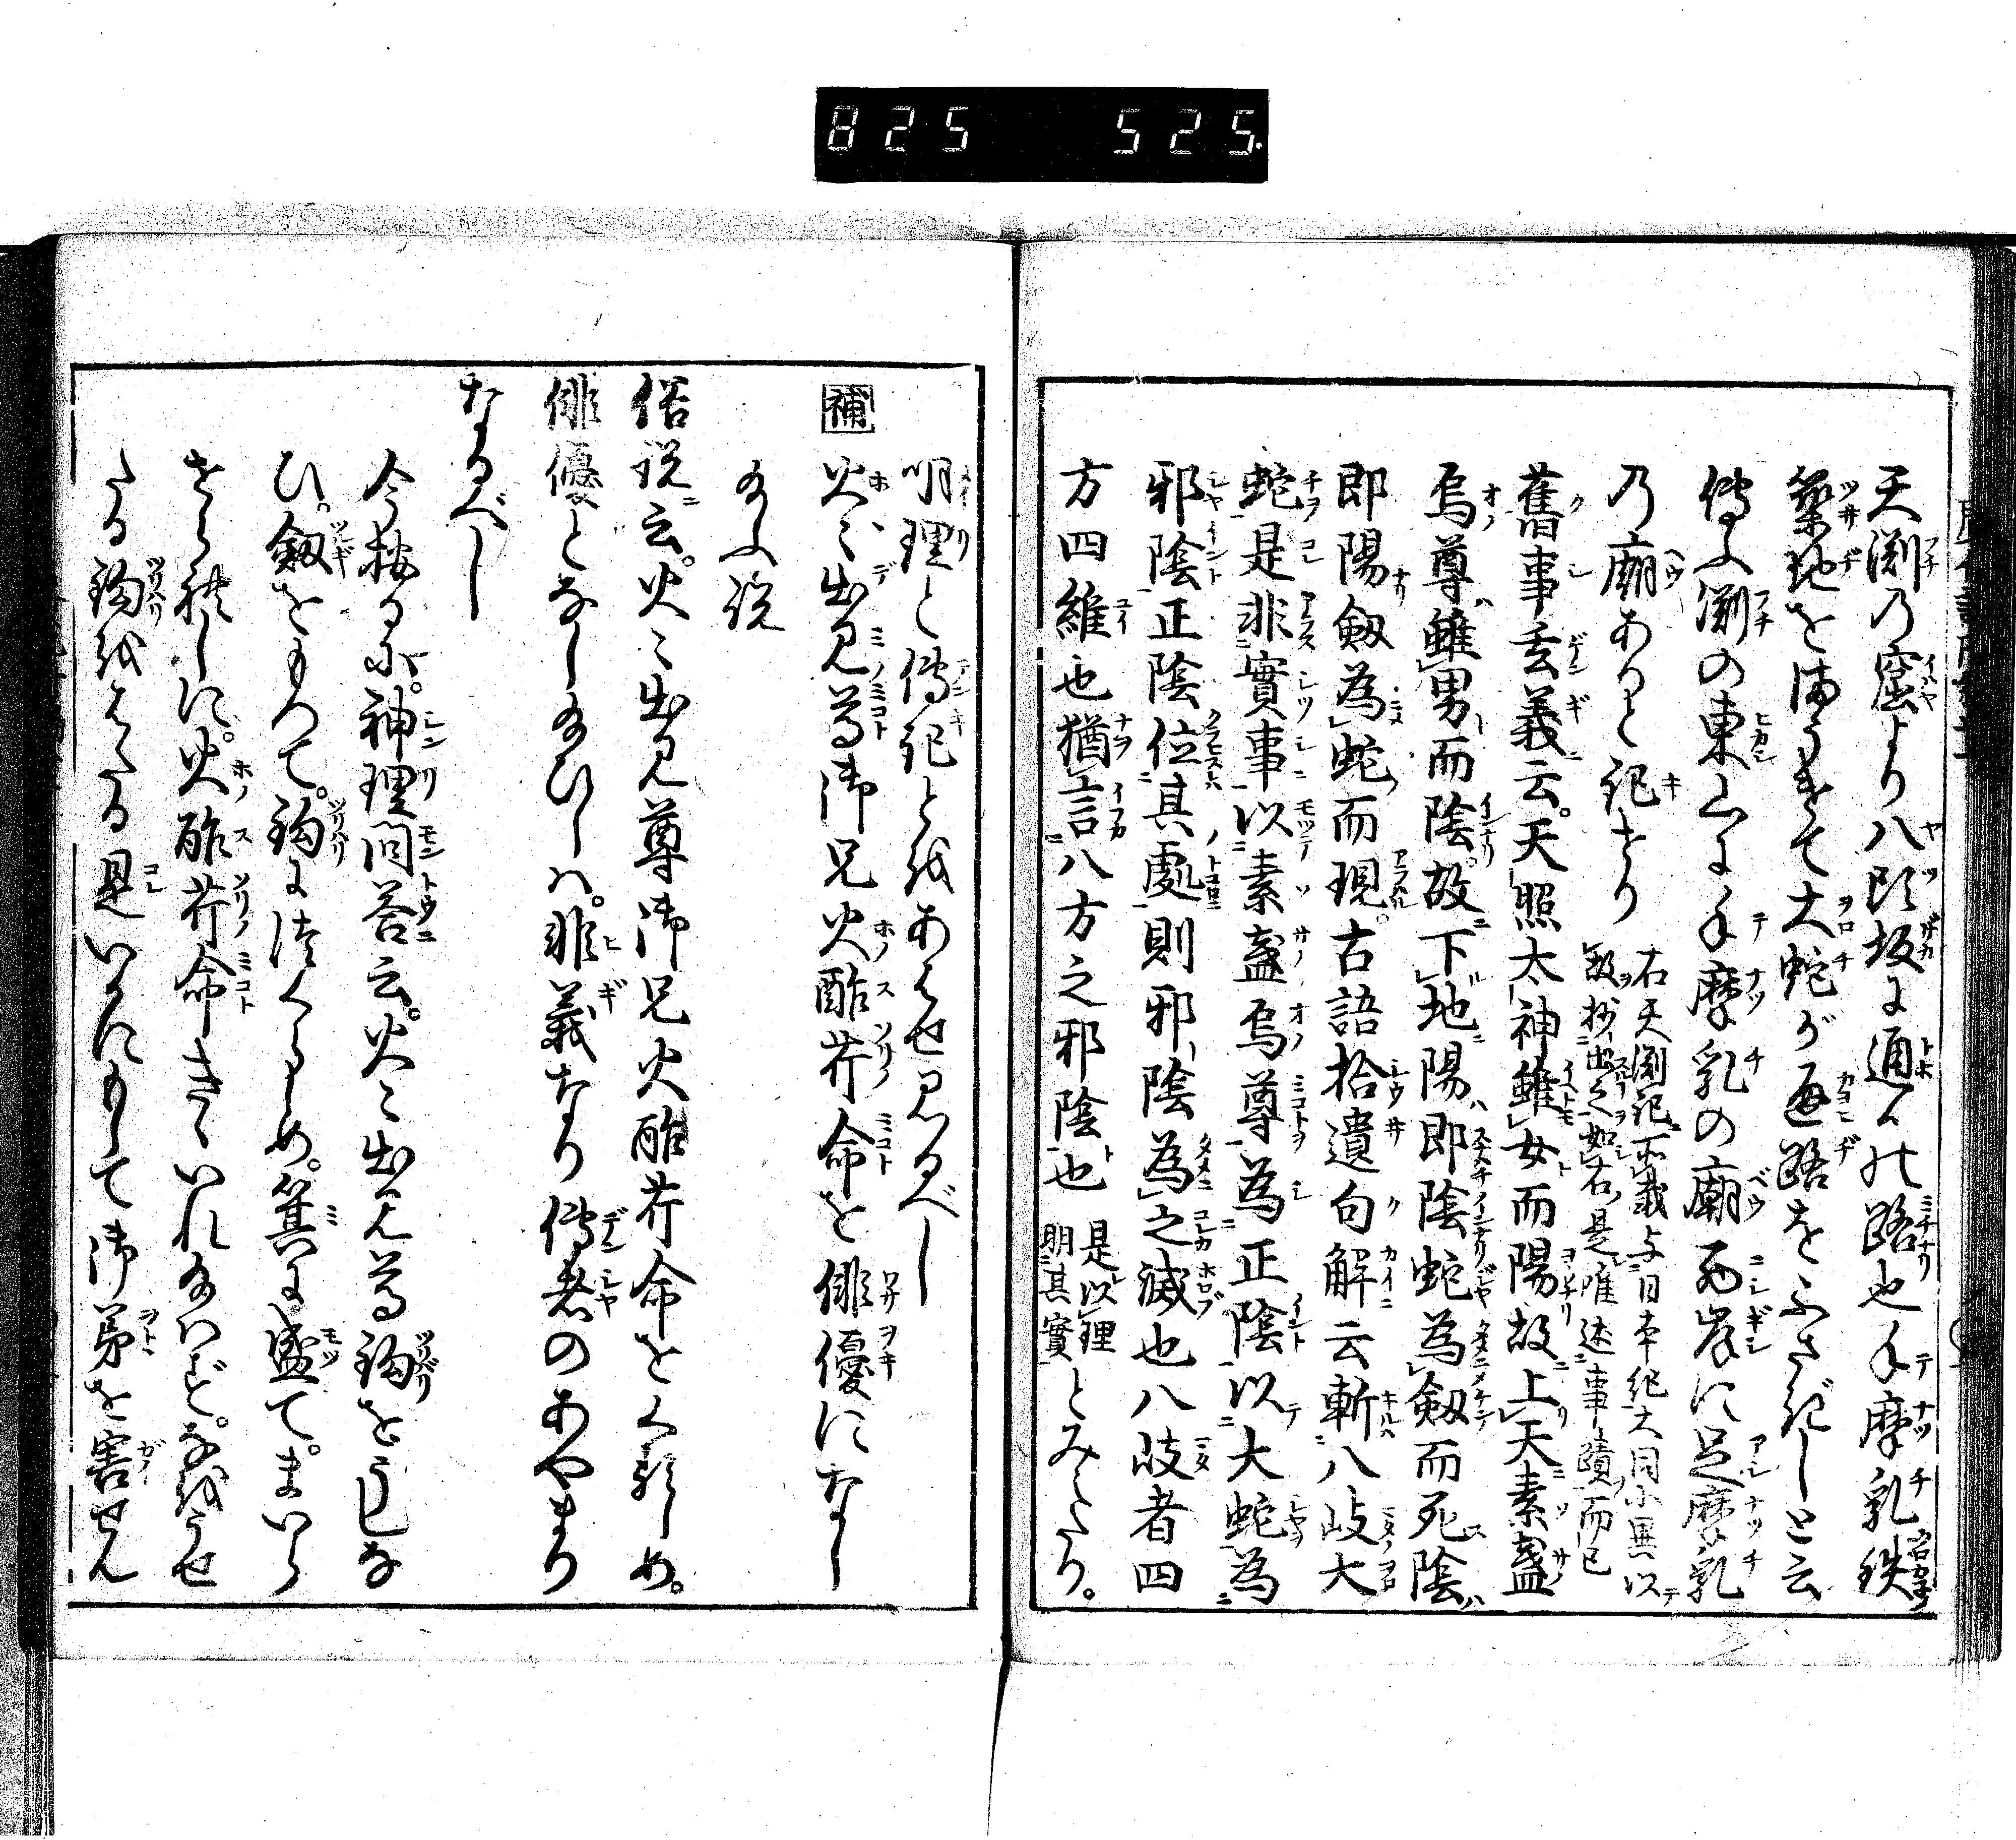 825 525.
天渕乃窟より八頭坂に通る路也手摩乳鉄
築地をほうきて大蛇が通路をふさぎしと云
傳ふ渕の東山に手摩乳の廟西岸に足摩乳
乃廟ありと記せり
右天渕記所載与日本紀大同小異以
故抄出之如右是唯述事蹟而已
舊事玄義云。天照太神雖女而陽故上天素盞
烏尊雖男而陰故下地陽即陰蛇為劔而死陰
即陽劔為蛇而現。古語拾遺句解云斬八岐大
蛇是非實事以素盞烏尊為正陰以大蛇為
邪陰正陰位其處則邪陰為之滅也八岐者四
方四維也猶言八方之邪陰也
是以理
明其實
とみへたり。
明理と傳記とをあはせ見るべし
補
火々出見尊御兄火酢芹命を俳優になし
給ふ説
俗説云。火々出見尊御兄火酢芹命をくるしめ。
俳優となし給ひしハ。非義なり傳者のあやまり
なるべし
今按るに。神理問答云。火々出見尊鈎をうしな
ひ。劔をもつて。鈎につくらしめ。箕に盛て。まいら
せられしに。火酢芹命きゝいれ給はず。なをうせ
たる鈎をはたる是いかにもして御弟を害せん